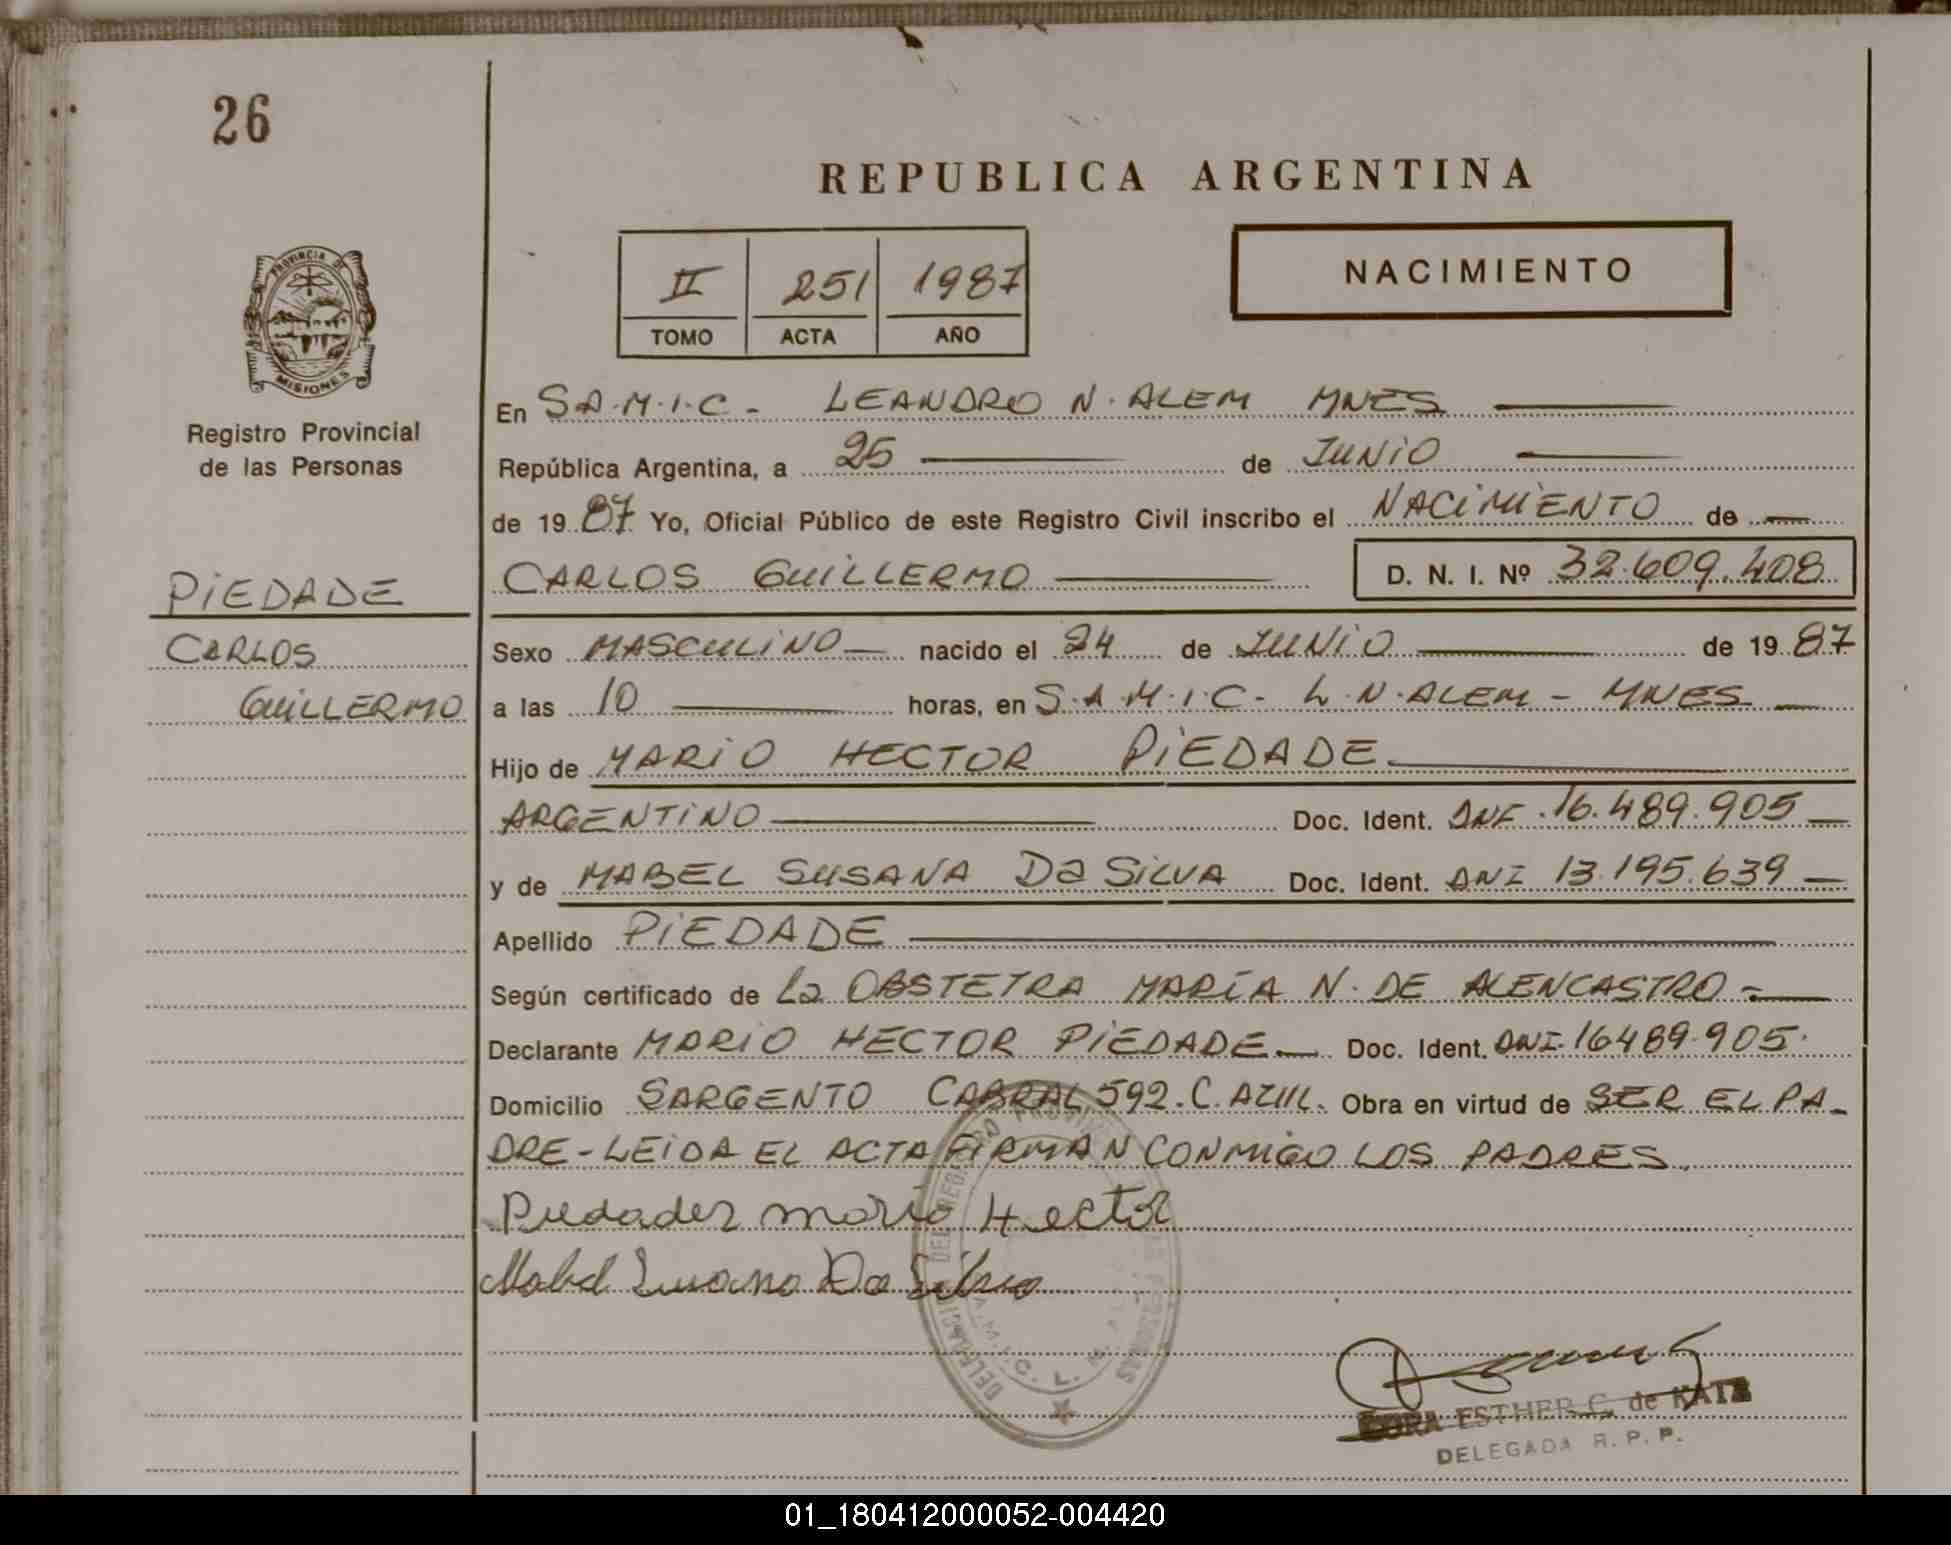 26
REPUBLICA ARGENTINA
II 251 1987
TOMO ACTA AÑO
NACIMIENTO
PROVINCIA DE
MISIONES
Registro Provincial
de las Personas
PIEDADE
CARLOS
GUILLERMO
En S.A.M.I.C. - LEANDRO N. ALEM MNES
República Argentina, a 25 de JUNIO
de 1987 Yo, Oficial Público de este Registro Civil inscribo el NACIMIENTO de
CARLOS GUILLERMO D. N. I. Nº 32.609.408
Sexo MASCULINO nacido el 24 de JUNIO de 1987
a las 10 horas, en S.A.M.I.C - L.N. ALEM - MNES
Hijo de MARIO HECTOR PIEDADE
ARGENTINO Doc. Ident. DNI 16.489.905
y de MABEL SUSANA Da SILVA Doc. Ident. DNI 13.195.639
Apellido PIEDADE
Según certificado de La OBSTETRA MARÍA N. DE ALENCASTRO -
Declarante MARIO HECTOR PIEDADE Doc. Ident. DNI 16489.905.
Domicilio SARGENTO CABRAL 592. C. AZUL. Obra en virtud de SER EL PA-
DRE - LEIDA EL ACTA FIRMAN CONMIGO LOS PADRES.
Piedader mario Hector
Mabel Susana Da Silva
ESTHER C. de KATZ
DELEGADA R. P. P.
01_180412000052-004420